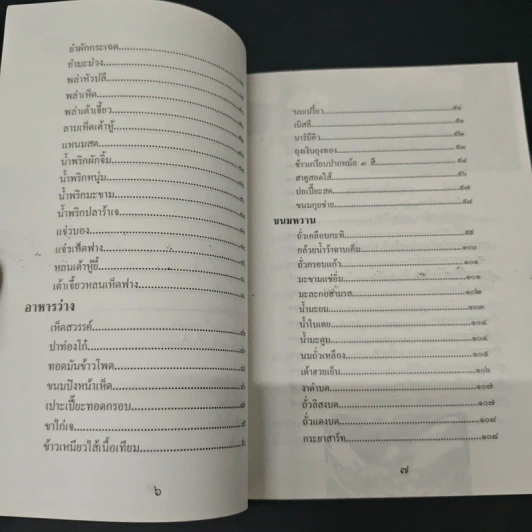 ยำผักกระเฉด
ยำมะม่วง
พล่าหัวปลี
พล่าเห็ด
พล่าเต้าเจี้ยว
ลาบเห็ดเต้าหู้
แหนมสด
น้ำพริกผักจิ้ม
น้ำพริกหนุ่ม
น้ำพริกมะขาม
น้ำพริกปลาร้าเจ
แจ่วบอง
แจ่วเห็ดฟาง
หลนเต้าหู้ยี้
เต้าเจี้ยวหลนเห็ดฟาง
อาหารว่าง
เห็ดสวรรค์
ปาท่องโก๋
ทอดมันข้าวโพด
ขนมปังหน้าเห็ด
เปาะเปี๊ยะทอดกรอบ
ขาไก่เจ
ข้าวเหนียวไส้เนื้อเทียม
๖
นมเปรี้ยว
เบิสดี้
บาร์บีคิว
ถุงเงินถุงทอง
ข้าวเกรียบปากหม้อ ๓ สี
สาคูสอดไส้
ปอเปี๊ยะสด
ขนมกุยช่าย
ขนมหวาน
ถั่วเคลือบกะทิ ๙๙
กล้วยน้ำว้าฉาบเค็ม ๑๐๐
ถั่วกรอบแก้ว ๑๐๑
มะขามแช่อิ่ม ๑๐๑
มะละกอสามรส ๑๐๒
น้ำมะยม ๑๐๓
น้ำใบเตย ๑๐๔
น้ำมะตูม ๑๐๔
นมถั่วเหลือง ๑๐๕
เต้าฮวยเย็น ๑๐๖
งาดำบด ๑๐๗
ถั่วลิสงบด ๑๐๗
ถั่วแดงบด ๑๐๘
กระยาสาร์ท ๑๐๘
๗